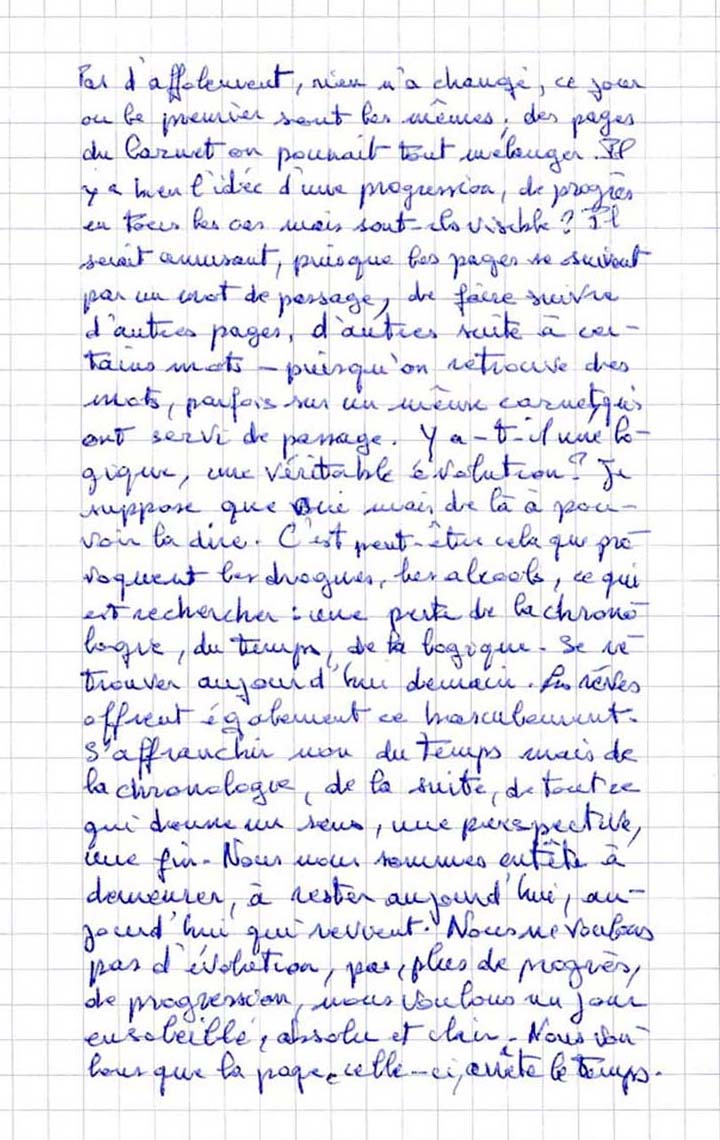 Pas d'affolement, rien n'a changé, ce jour
ou le premier sont les mêmes ; des pages
du Carnet on pourrait tout mélanger. Il
y a bien l'idée d'une progression, de progrès
en tous les cas mais sont-ils visible ? Il
serait amusant, puisque les pages se suivent
par un mot de passage, de faire suivre
d'autres pages, d'autres suite à cer-
tains mots – puisqu'on retrouve des
mots, parfois sur un même carnet, qui
ont servi de passage. Y a-t-il une lo-
gique, une véritable évolution ? Je
suppose que oui mais de là à pou-
voir la dire. C'est peut-être cela que pro-
voquent les drogues, les alcools, ce qui
est rechercher : une perte de la chrono-
logie, du temps, de la logique. Se re-
trouver aujourd'hui demain. Les rêves
offrent également ce basculement.
S'affranchir non du temps mais de
la chronologie, de la suite, de tout ce
qui donne un sens, une perspective,
une fin. Nous nous sommes entêté à
demeurer, à rester aujourd'hui, au-
jourd'hui qui revient. Nous ne voulons
pas d'évolution, pas, plus de progrès,
de progression, nous voulons un jour
ensoleillé, absolu et clair. Nous vou-
lons que la page, celle-ci, arrête le temps.